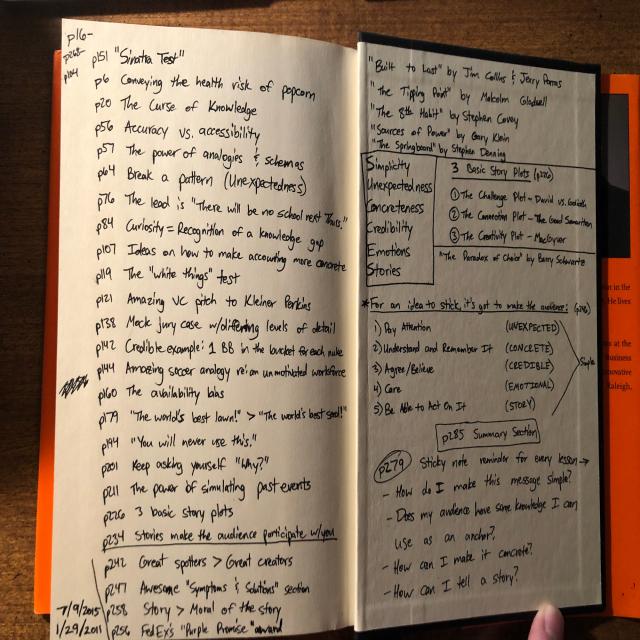 p16-
p268-
p104
p151 "Sinatra Test"
p6 Conveying the health risk of popcorn
p20 The Curse of Knowledge
p56 Accuracy vs. accessibility
p57 The power of analogies & schemas
p64 Break a pattern (Unexpectedness)
p76 The lead is "There will be no school next Thurs."
p84 Curiosity = Recognition of a knowledge gap
p107 Ideas on how to make accounting more concrete
p119 The "white things" test
p121 Amazing VC pitch to Kleiner Perkins
p138 Mock jury case w/differing levels of detail
p142 Credible example: 1 BB in the bucket for each nuke
p144 Amazing soccer analogy re: an unmotivated workforce
p160 The availability bias
p179 "The world's best lawn!" > "The world's best seed!"
p194 "You will never use this."
p201 Keep asking yourself "Why?"
p211 The power of simulating past events
p226 3 basic story plots
p234 Stories make the audience participate w/you
p242 Great spotters > Great creators
p247 Awesome "Symptoms & Solutions" section
7/9/2015 p258 Story > Moral of the story
1/29/2011 p256 FedEx's "Purple Promise" award
"Built to Last" by Jim Collins & Jerry Porras
"The Tipping Point" by Malcolm Gladwell
"The 8th Habit" by Stephen Covey
"Sources of Power" by Gary Klein
"The Springboard" by Stephen Denning
Simplicity
Unexpectedness
Concreteness
Credibility
Emotions
Stories
3 Basic Story Plots (p226)
1 The Challenge Plot - David vs. Goliath
2 The Connection Plot - The Good Samaritan
3 The Creativity Plot - MacGyver
"The Paradox of Choice" by Barry Schwartz
*For an idea to stick, it's got to make the audience: (p246)
1) Pay Attention (UNEXPECTED)
2) Understand and Remember It (CONCRETE)
3) Agree/Believe (CREDIBLE)
4) Care (EMOTIONAL)
5) Be Able to Act On It (STORY)
Simple
p285 Summary Section
p279 Sticky note reminder for every lesson →
- How do I make this message simple?
- Does my audience have some knowledge I can
use as an anchor?
- How can I make it concrete?
- How can I tell a story?
in the
He lives
at the
business
Raleigh,